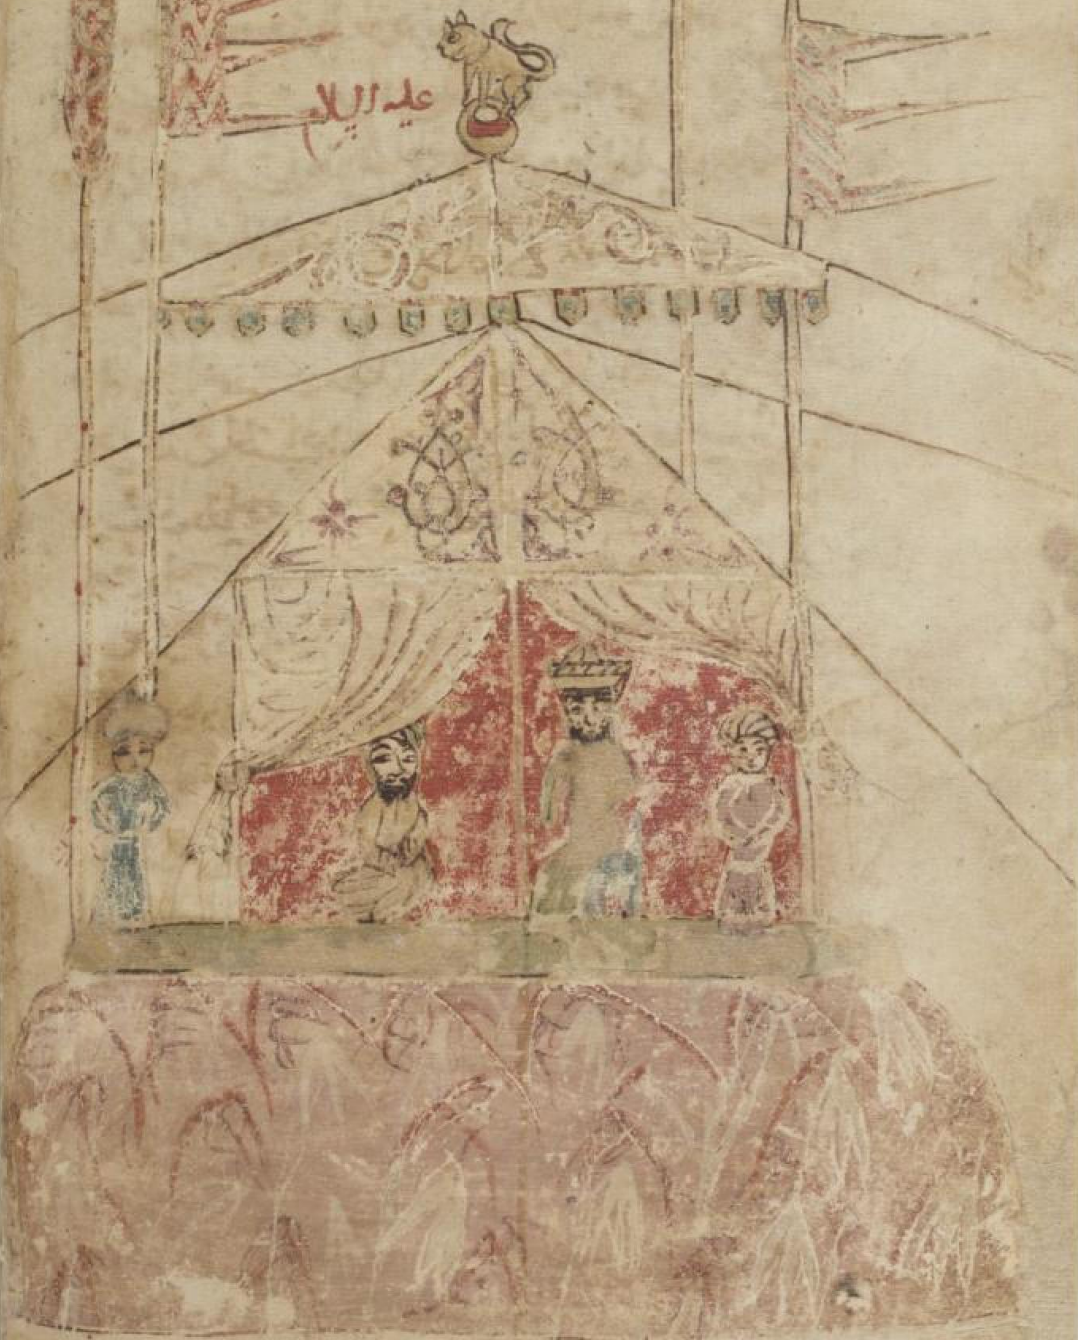 عليه السلام